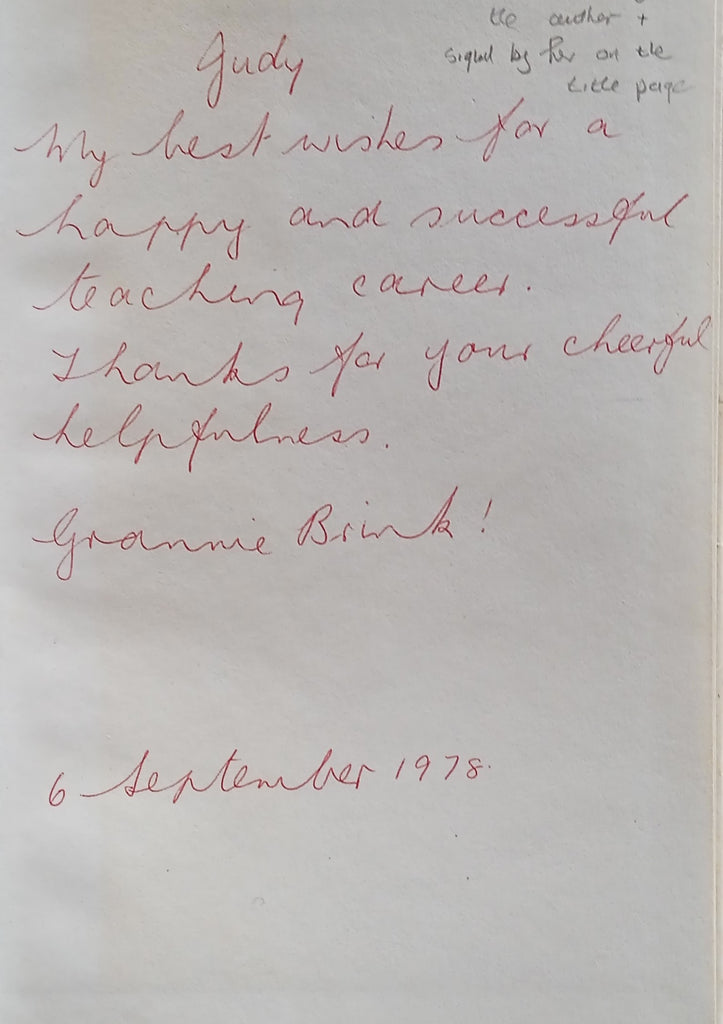 the author +
signed by her on the
title page
Judy
My best wishes for a
happy and successful
teaching career.
Thanks for your cheerful
helpfulness.
Grannie Brink!
6 September 1978.